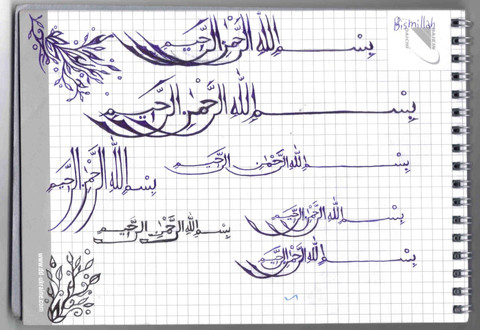 Bismillah
بِسْمِ اللّٰهِ الرَّحْمٰنِ الرَّحِيمِ
بِسْمِ اللّٰهِ الرَّحْمٰنِ الرَّحِيمِ
بِسْمِ اللّٰهِ الرَّحْمٰنِ الرَّحِيمِ
بِسْمِ اللّٰهِ الرَّحْمٰنِ الرَّحِيمِ
بِسْمِ اللّٰهِ الرَّحْمٰنِ الرَّحِيمِ
بِسْمِ اللّٰهِ الرَّحْمٰنِ الرَّحِيمِ
بِسْمِ اللّٰهِ الرَّحْمٰنِ الرَّحِيمِ